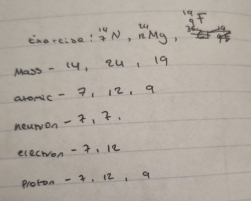 Exercise : ¹⁴₇N, ²⁴₁₂Mg, ¹⁹₉F
Mass - 14, 24, 19
atomic - 7, 12, 9
neutron - 7, 7.
electron - 7, 12
Proton - 7, 12, 9